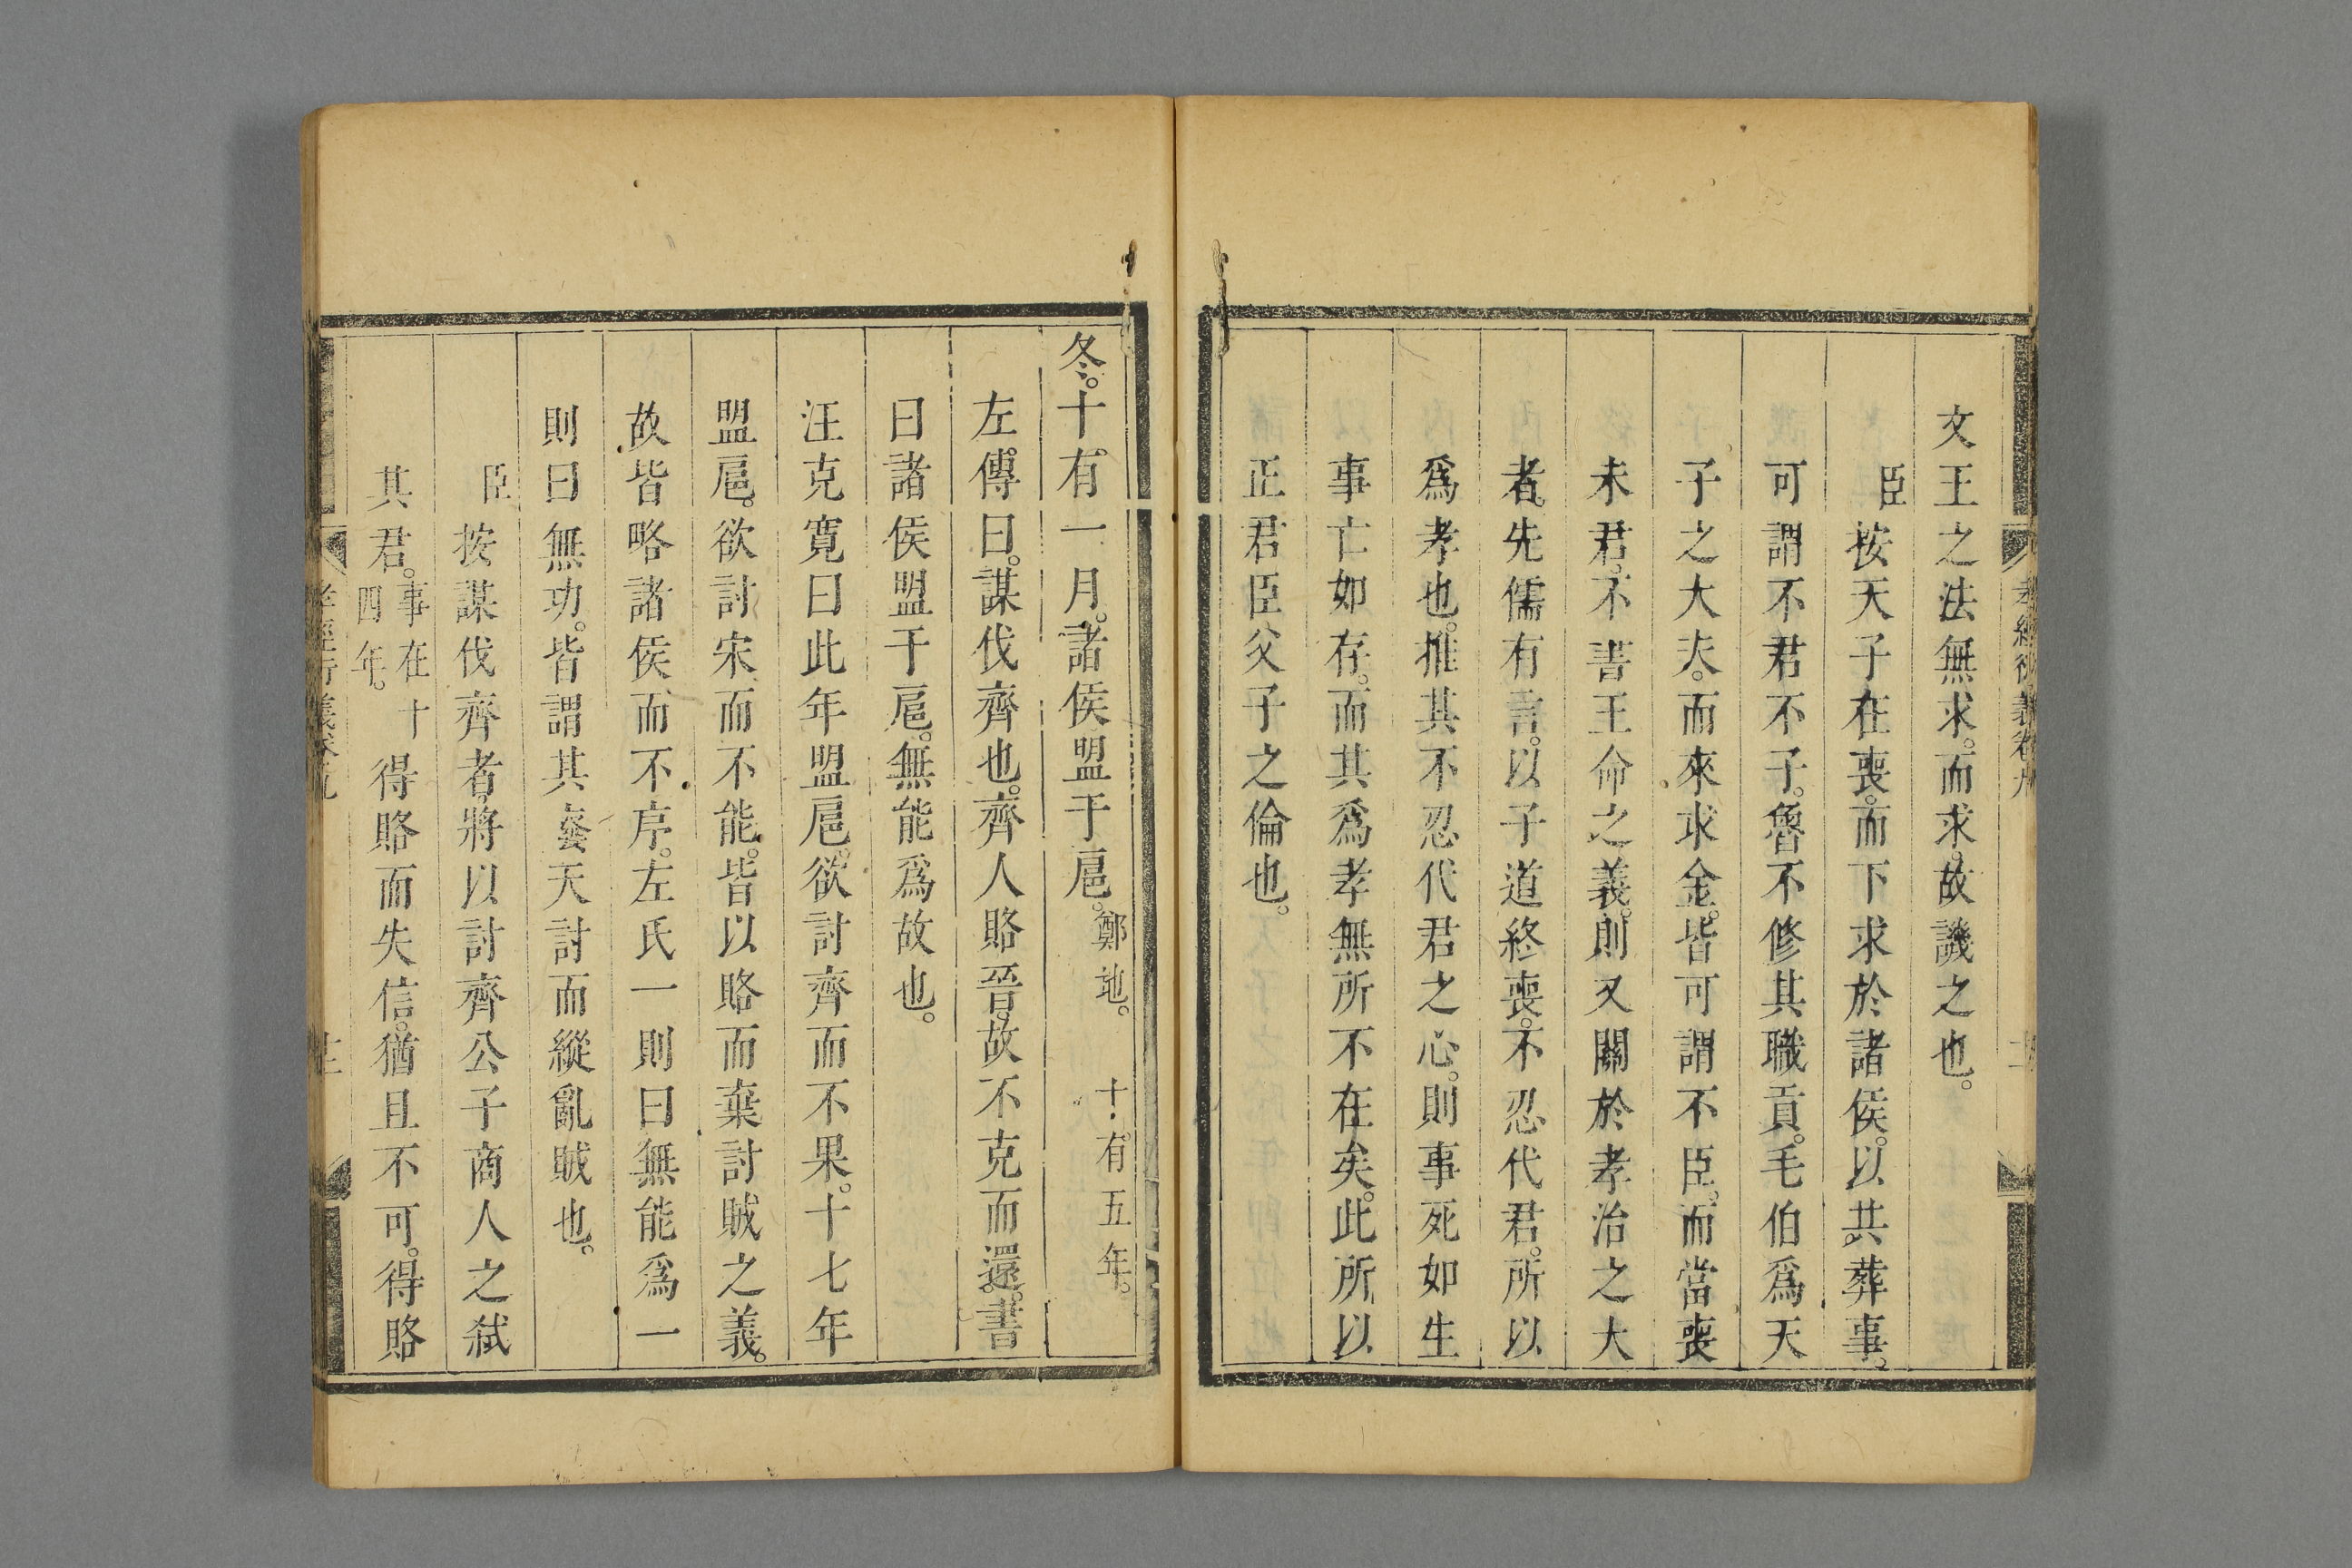 文王之法無求。而求。故譏之也。
臣按天子在喪。而下求於諸侯。以共葬事。
可謂不君不子。魯不修其職貢。毛伯爲天
子之大夫。而來求金。皆可謂不臣。而當喪
未君。不書王命之義。則又關於孝治之大
者。先儒有言。以子道終喪。不忍代君。所以
爲孝也。推其不忍代君之心。則事死如生
事亡如存。而其爲孝無所不在矣。此所以
正君臣父子之倫也。
冬。十有一月。諸侯盟于扈。鄭地。 十有五年。
左傳曰。謀伐齊也。齊人賂晉。故不克而還。書
曰諸侯盟于扈。無能爲故也。
汪克寛曰此年盟扈。欲討齊而不果。十七年
盟扈。欲討宋而不能。皆以賂而棄討賊之義。
故皆略諸侯而不序。左氏一則曰無能爲一
則曰無功。皆謂其䙝天討而縱亂賊也。
臣按謀伐齊者。將以討齊公子商人之弑
其君。事在十四年。得賂而失信。猶且不可。得賂
孝經衍義卷九